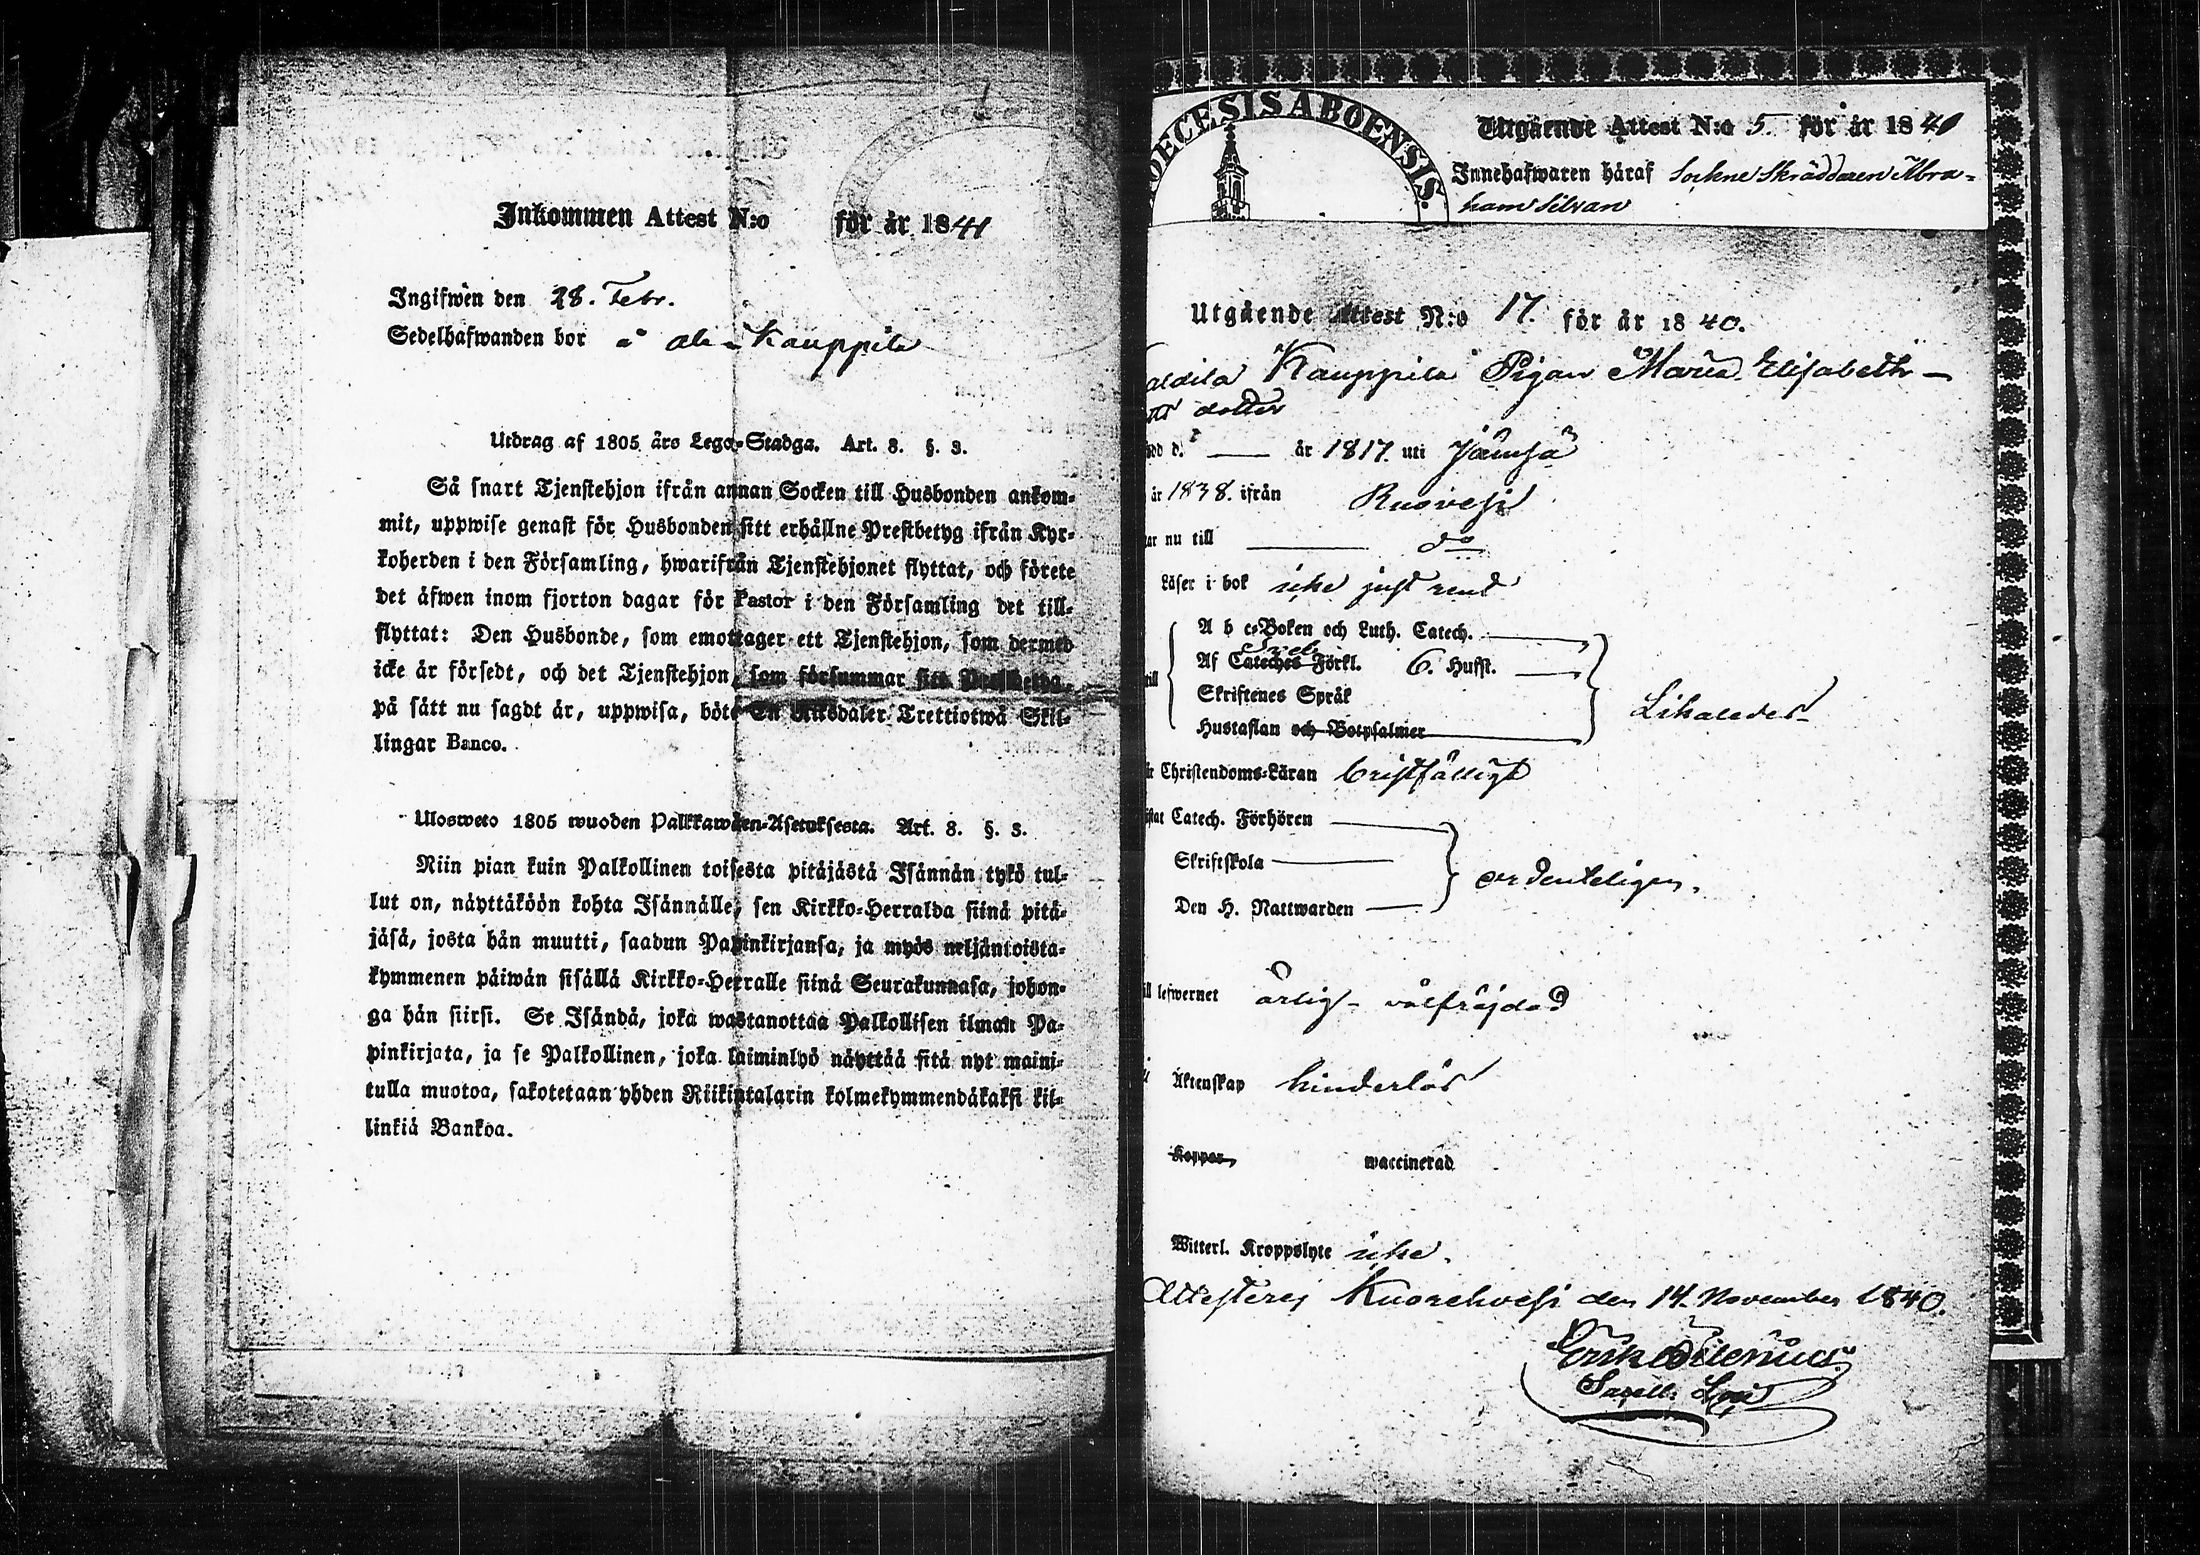 Inkommen Attest N:o för år 1841
Ingifwen den 28. Febr.
Sedelhafwanden bor å Ala-Kauppila
Utdrag af 1805 års Lego-Stadga. Art. 8. §. 3.
Så snart Tjenstehjon ifrån annan Socken till Husbonden ankom-
mit, uppwise genast för Husbonden sitt erhållne Prestbetyg ifrån Kyr-
koherden i den Församling, hwarifrån Tjenstehjonet flyttat, och förete
det äfwen inom fjorton dagar för Pastor i den Församling det till-
flyttat: Den Husbonde, som emottager ett Tjenstehjon, som dermed
icke är försedt, och det Tjenstehjon, som försummar sitt Prestbetyg,
på sätt nu sagdt är, uppwisa, böte En Riksdaler Trettiotwå Skil-
lingar Banco.
Ulosweto 1805 wuoden Palkkawäen-Asetuksesta. Art. 8. §. 3.
Niin pian kuin Palkollinen toisesta pitäjästä Isännän tykö tul-
lut on, näyttäköön kohta Isännälle, sen Kirkko-Herralda siinä pitä-
jäsä, josta hän muutti, saadun Papinkirjansa, ja myös neljäntoista-
kymmenen päiwän sisällä Kirkko-Herralle siinä Seurakunnasa, johon-
ga hän siirsi. Se Isändä, joka wastanottaa Palkollisen ilman Pa-
pinkirjata, ja se Palkollinen, joka laiminlyö näyttää sitä nyt maini-
tulla muotoa, sakotetaan yhden Riikintalarin kolmekymmendäkaksi kil-
linkiä Bankoa.
DIOECESIS ABOENSIS.
Utgående Attest N:o 5. för år 1840
Innehafwaren häraf Sockne Skräddaren Abra-
ham Silvan
Utgående Attest N:o 17. för år 1840.
Kauppila Pigan Maria Elisabeth
dotter
d. är 1817. uti Jämsä
år 1838. ifrån Ruovesi
nu till do
Läser i bok icke just rent
A b c-Boken och Luth. Catech.
Af Cateches Förkl. 6. Hufst.
Skriftenes Språk
Hustaflan och Botpsalmer
Likaledes
Christendoms-Läran bristfälligt
Catech. Förhören
Skriftskola
Den H. Nattwarden
ordenteligen.
lefwernet ärlig - välfräjdad
Äktenskap hinderlös
Koppor, waccinerad
Witterl. Kroppslyte icke.
Attesterej Kuorehvesi den 14. November 1840.
Erik
Sacell.